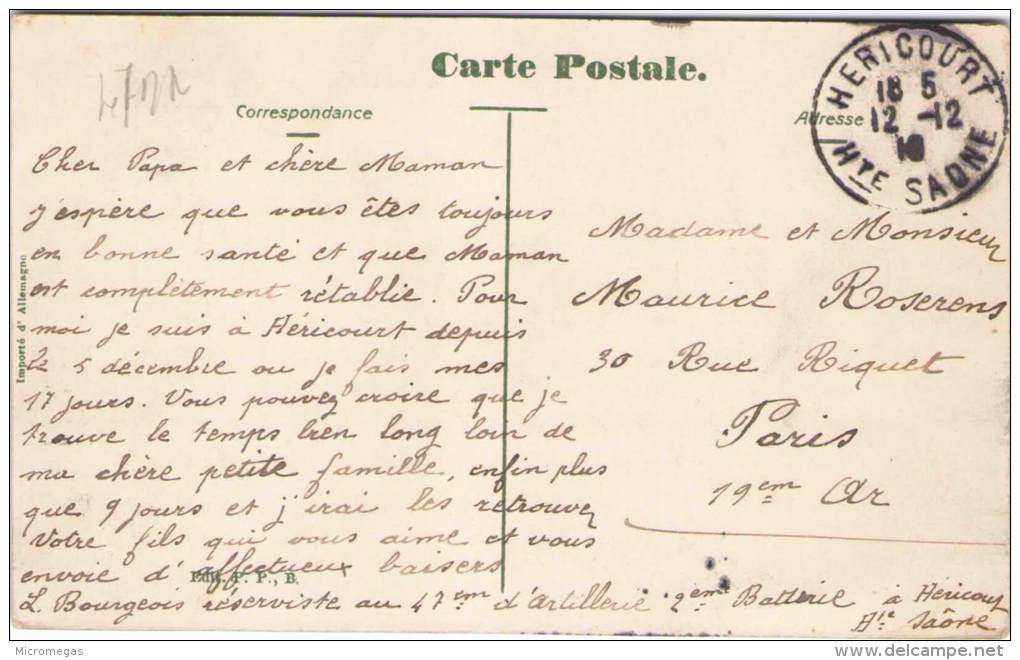 Carte Postale.
HERICOURT
18 5
12 -12
10
HTE SAONE
Correspondance
Adresse
Cher Papa et chère Maman
j'espère que vous êtes toujours
en bonne santé et que Maman
est complètement rétablie. Pour
moi je suis à Héricourt depuis
le 5 décembre ou je fais mes
17 jours. Vous pouvez croire que je
trouve le temps bien long loin de
ma chère petite famille, enfin plus
que 9 jours et j'irai les retrouvez
Votre fils qui vous aime et vous
envoie d'affectueux baisers
L. Bourgeois réserviste au 47em d'artillerie 2eme Batterie à Héricourt
Hte Saône
Madame et Monsieur
Maurice Roserens
30 Rue Riquet
Paris
19em Ar
Importé d'Allemagne
Edit. P. P., B.
Micromegas
delcampe.net